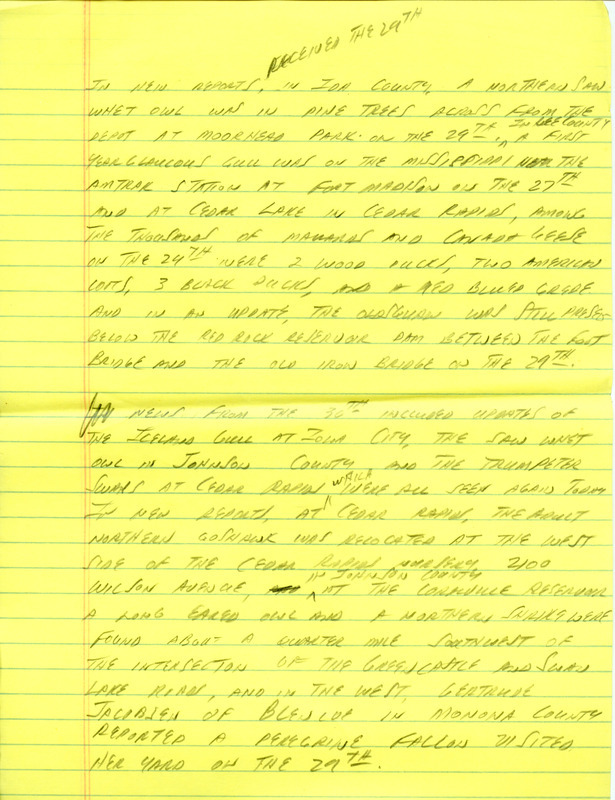 RECEIVED THE 29TH
IN NEW REPORTS, IN IDA COUNTY, A NORTHERN SAW
WHET OWL WAS IN PINE TREES ACROSS FROM THE
DEPOT AT MOORHEAD PARK ON THE 29TH IN LEE COUNTY A FIRST
YEAR GLAUCOUS GULL WAS ON THE MISSISSIPPI NEAR THE
AMTRAK STATION AT FORT MADISON ON THE 27TH
AND AT CEDAR LAKE IN CEDAR RAPIDS, AMONG
THE THOUSANDS OF MALLARDS AND CANADA GEESE
ON THE 29TH WERE 2 WOOD DUCKS, TWO AMERICAN
COOTS, 3 BLACK DUCKS, A PIED BILLED GREBE
AND IN AN UPDATE, THE OLDSQUAW WAS STILL PRESENT
BELOW THE RED ROCK RESERVOIR DAM BETWEEN THE FOOT
BRIDGE AND THE OLD IRON BRIDGE ON THE 29TH.
NEWS FROM THE 30TH INCLUDED UPDATES OF
THE ICELAND GULL AT IOWA CITY, THE SAW WHET
OWL IN JOHNSON COUNTY AND THE TRUMPETER
SWANS AT CEDAR RAPIDS WHICH WERE ALL SEEN AGAIN TODAY
IN NEW REPORTS, AT CEDAR RAPIDS, THE ADULT
NORTHERN GOSHAWK WAS RELOCATED AT THE WEST
SIDE OF THE CEDAR RAPIDS NURSERY 2100
WILSON AVENUE, IN JOHNSON COUNTY AT THE CORALVILLE RESERVOIR
A LONG EARED OWL AND A NORTHERN SHRIKE WERE
FOUND ABOUT A QUARTER MILE SOUTHWEST OF
THE INTERSECTION OF THE GREENCASTLE AND SWAN
LAKE ROADS, AND IN THE WEST, GERTRUDE
JACOBSEN OF BLENCOE IN MONONA COUNTY
REPORTED A PEREGRINE FALCON VISITED
HER YARD ON THE 29TH.